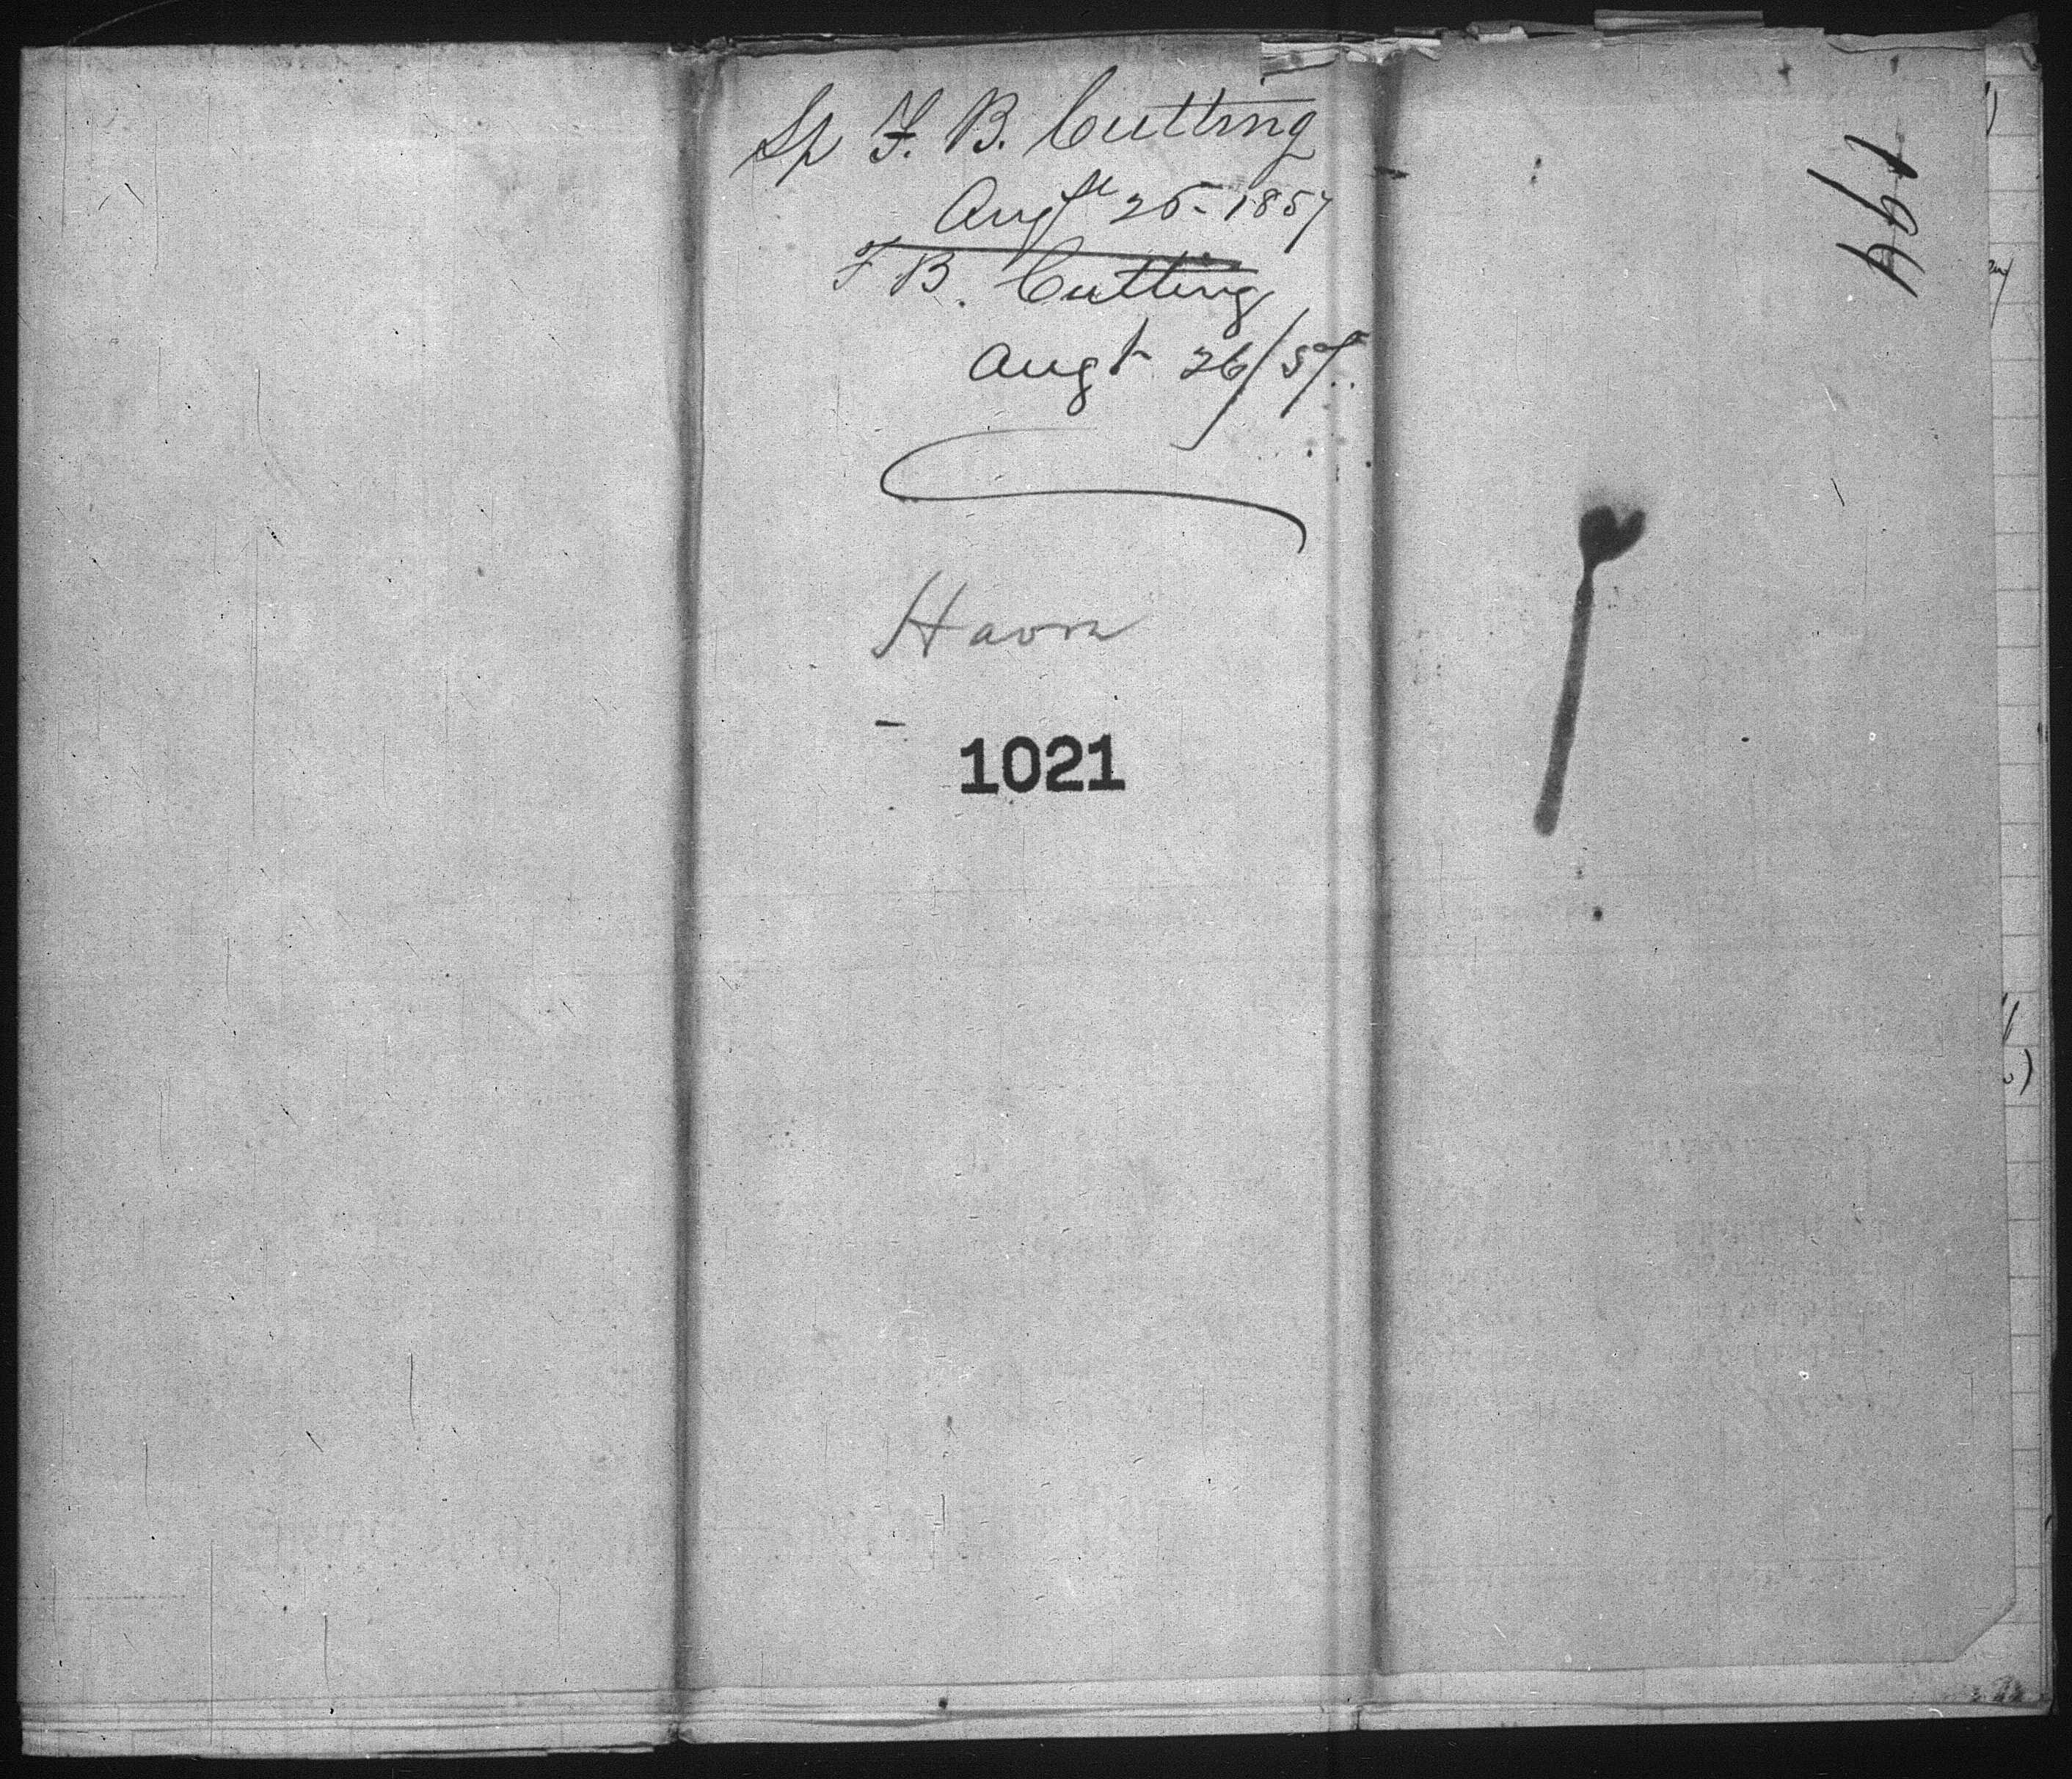 Sp F. B. Cutting
Augst 26 - 1857
F B. Cutting
Augt 26/57.
Havre
1021